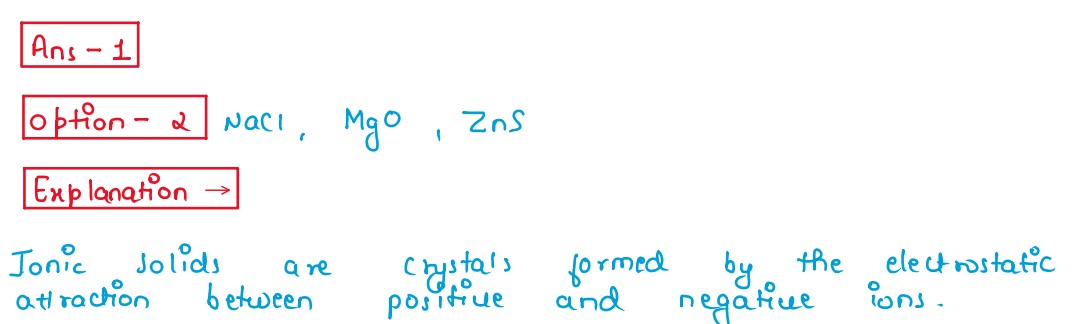 Ans - 1
Option - 2 NaCl, MgO, ZnS
Explanation →
Ionic solids are crystals formed by the electrostatic
attraction between positive and negative ions.